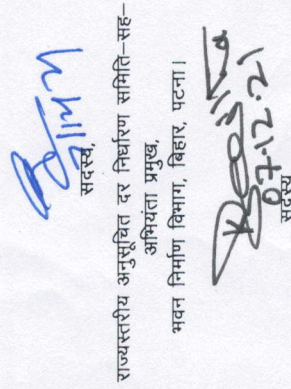 सदस्य,
राज्यस्तरीय अनुसूचित दर निर्धारण समिति–सह–
अभियंता प्रमुख,
भवन निर्माण विभाग, बिहार, पटना।
07.12.21
सदस्य